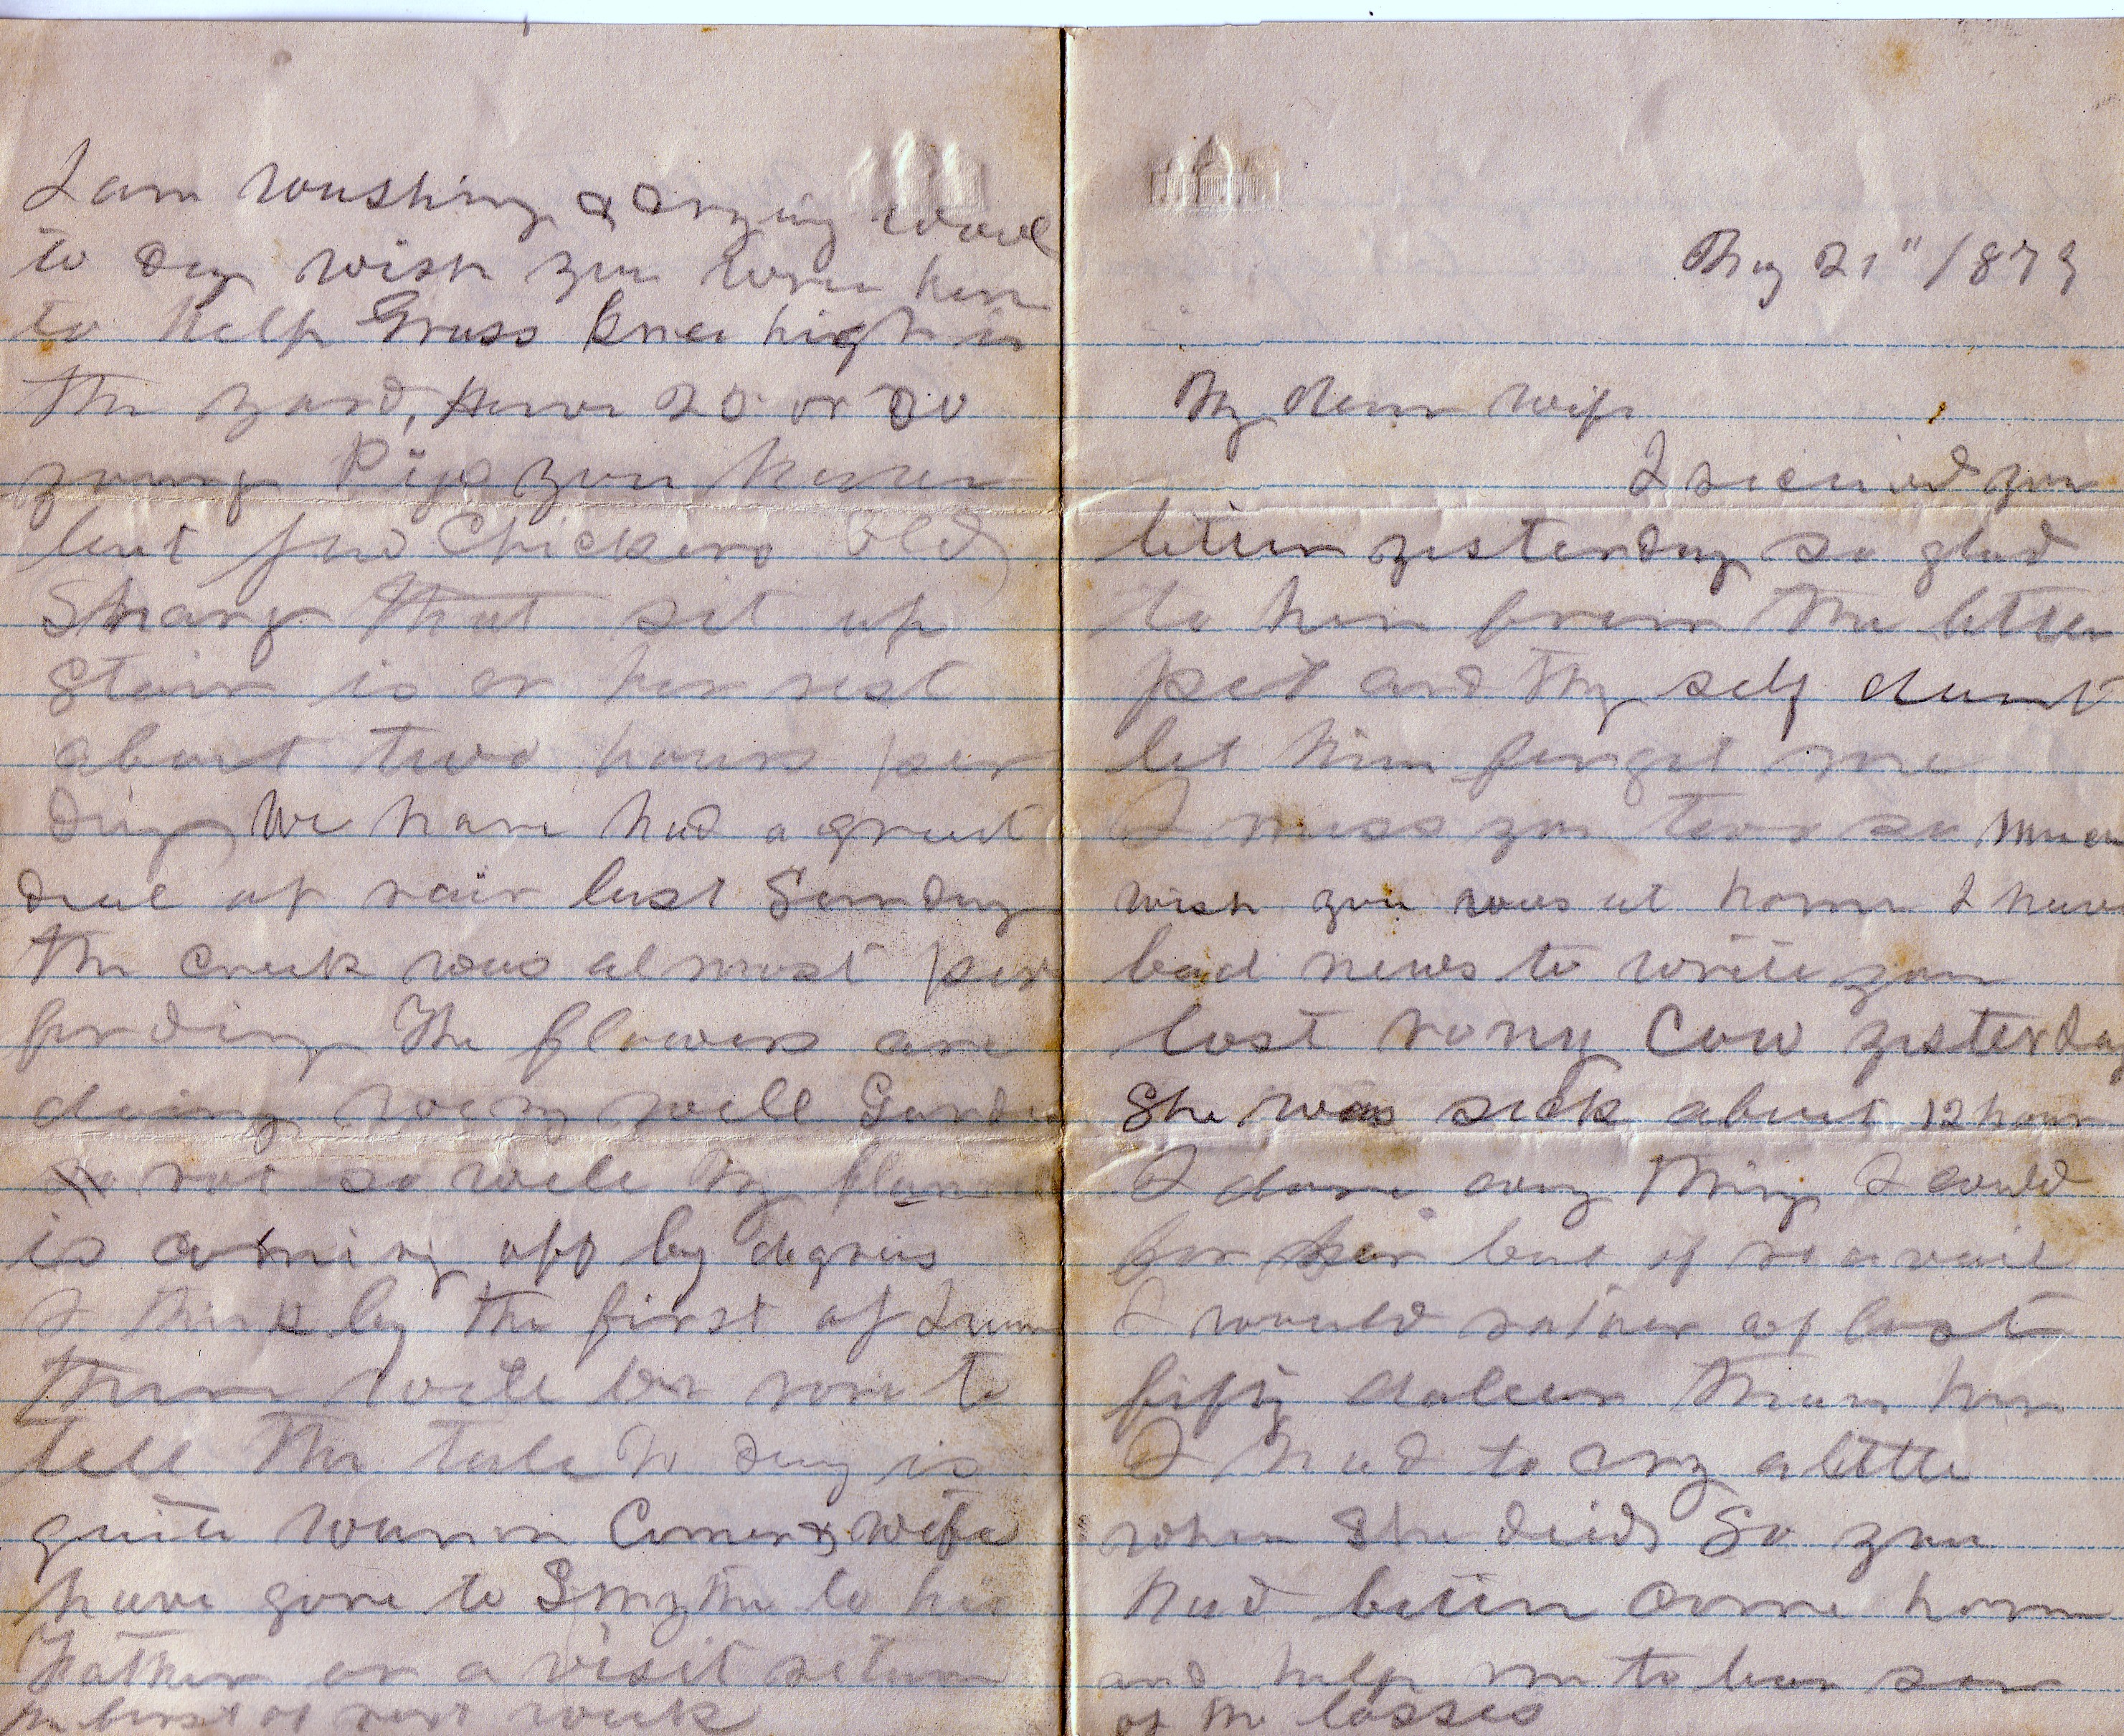 May 21" /879
My dear wife
I recived your
letter yesterday so glad
to hear from the little
pet and thy self dunt
let him forget me
I miss you two so much
wish you was at home I have
bad news to write you
lost rony Cow yesterday
She was sick about 12 hour
I done any thing I could
for her but of no avail
I would rather of lost
fifty doller than her
I had to cry a little
when She died So you
had better come home
and help me to bear some
of the losses
I am washing & drying wool
to day wish you were here
to help Grass knee high in
the yard, have 20 or 30
young Pigs you have
but few Chickens Old
Shang that sit up
stair is on her nest
about two hours per
day We have had a great
deal of rain last Sunday
the creek was almost past
fording The flowers are
doing very well Garden
not so well My flannel
is coming off by degrees
I think by the first of June
there will be none to
tell the tale To day is
quite warm Comer & wife
have gone to Smythe to her
Father on a visit return
the first of next week